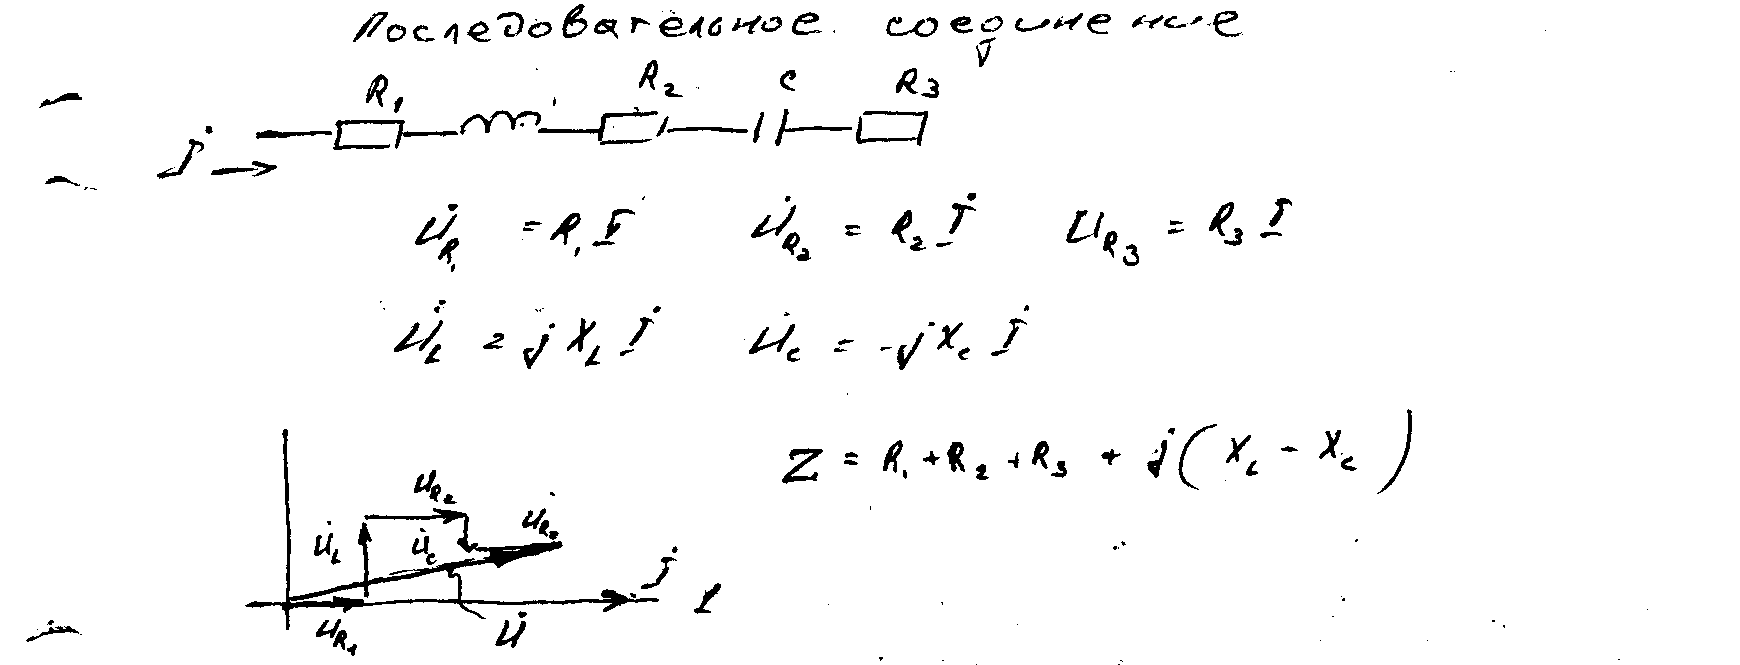 Последовательное соединение
R₁ R₂ C R₃
İ
U̇_R₁ = R₁ İ U̇_R₂ = R₂ İ U_R₃ = R₃ I
U̇_L = j X_L İ U̇_C = -j X_C İ
Z = R₁ + R₂ + R₃ + j ( X_L - X_C )
U_R₂
U̇_L U̇_C U̇_R₂
İ
U_R₁ U̇